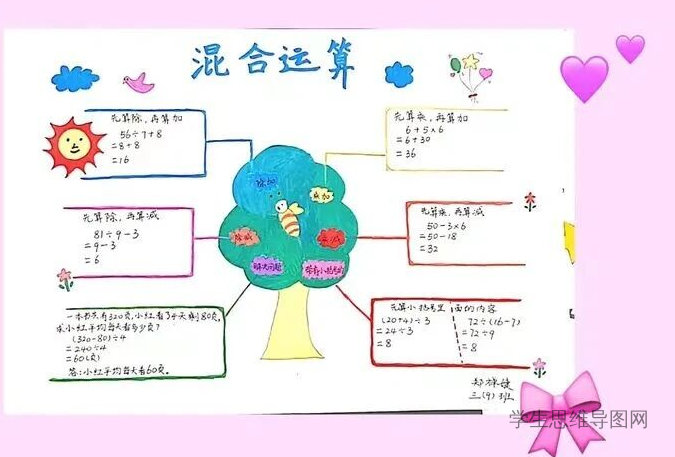 混合运算
先算除，再算加
56÷7+8
=8+8
=16
先算乘，再算加
6+5×6
=6+30
=36
除加
乘加
先算除，再算减
81÷9-3
=9-3
=6
先算乘，再算减
50-3×6
=50-18
=32
除减
乘减
解决问题
带有小括号的
一本书有320页，小红看了4天剩80页。
求小红平均每天看多少页？
(320-80)÷4
=240÷4
=60(页)
答：小红平均每天看60页。
先算小括号里面的内容
(20+4)÷3
=24÷3
=8
72÷(16-7)
=72÷9
=8
三(9)班
学生思维导图网